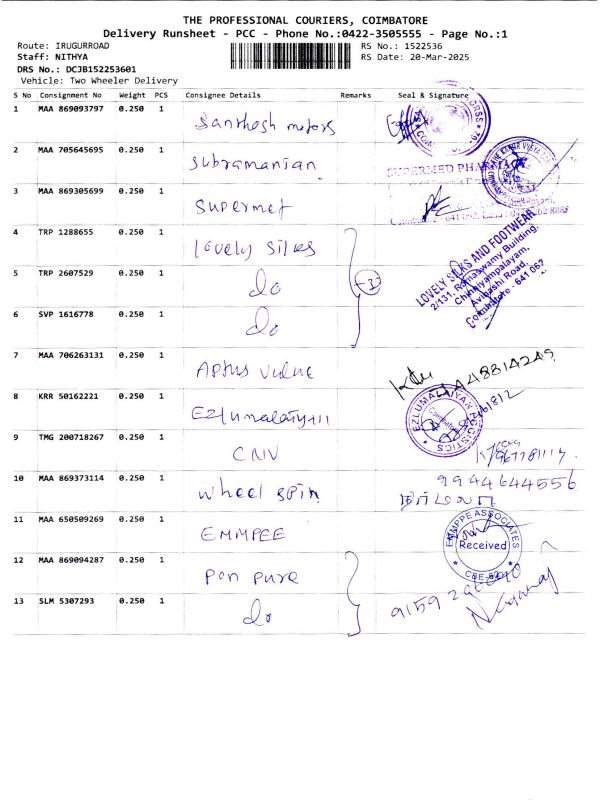 THE PROFESSIONAL COURIERS, COIMBATORE
Delivery Runsheet - PCC - Phone No.:0422-3505555 - Page No.:1
Route: IRUGURROAD
RS No.: 1522536
Staff: NITHYA
RS Date: 20-Mar-2025
DRS No.: DCJB152253601
Vehicle: Two Wheeler Delivery
S No Consignment No Weight PCS Consignee Details Remarks Seal & Signature
1 MAA 869093797 0.250 1 Santhosh motors
2 MAA 705645695 0.250 1 Subramanian
SUPERMED PHARMACY
3 MAA 869305699 0.250 1 Supermed
4 TRP 1288655 0.250 1 lovely silks
5 TRP 2607529 0.250 1 do 3
LOVELY SILKS AND FOOTWEAR
2/131, Ramaswamy Building,
Chinniyampalayam,
Avinashi Road,
Coimbatore - 641 062
6 SVP 1616778 0.250 1 do
7 MAA 706263131 0.250 1 Aptus value
8 KRR 50162221 0.250 1 Ezlumalaiyan
EZLUMALAIYAN LOGISTICS
Coimbatore
9 TMG 200718267 0.250 1 CNV
10 MAA 869373114 0.250 1 wheel spin 9944644556
11 MAA 650509269 0.250 1 EMMPEE
EMMPPE ASSOCIATES
Received
12 MAA 869094287 0.250 1 Pon pure
13 SLM 5307293 0.250 1 do
Nagaraj